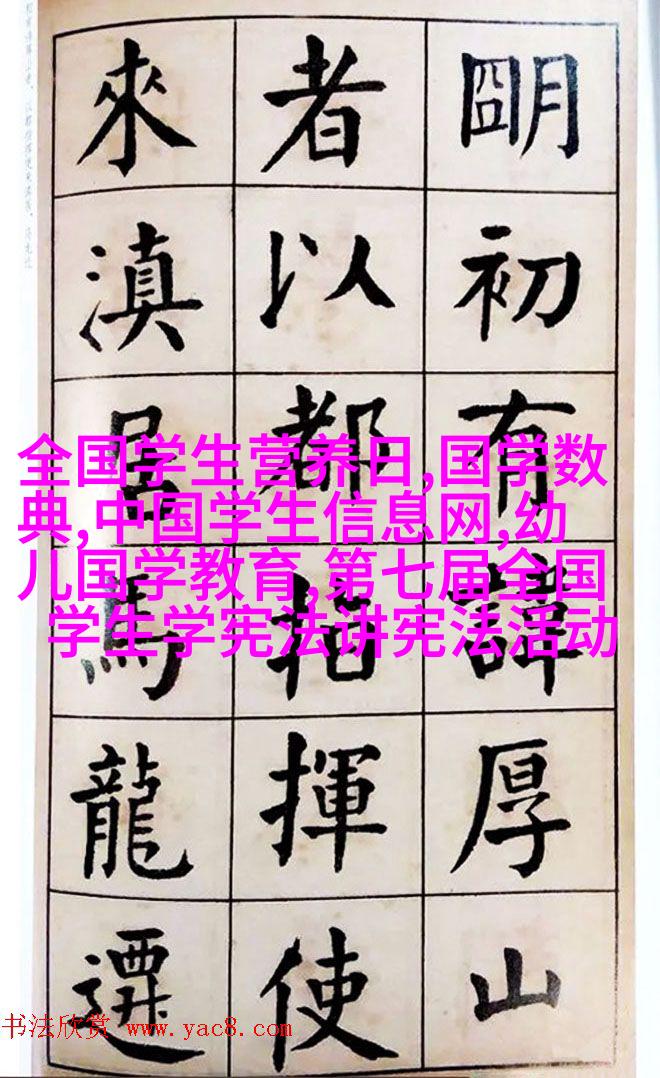 朙初有諱厚山
者以都指揮使
來滇居馬龍遷
全国学生营养日,国学数
典,中国学生信息网,幼
儿国学教育,第七届全国
学生学宪法讲宪法活动
书法欣赏 www.yac8.com